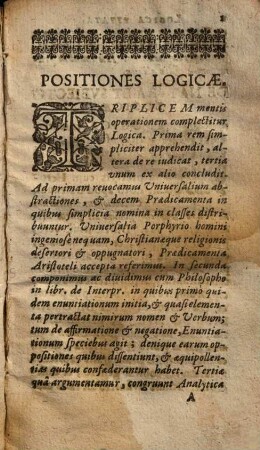 POSITIONES LOGICÆ.
TRIPLICEM mentis
operationem complectitur
Logica. Prima rem sim-
pliciter apprehendit, al-
tera de re iudicat, tertia
vnum ex alio concludit.
Ad primam reuocamus Uniuersalium ab-
stractiones, & decem Prædicamenta in
quibus simplicia nomina in classes distri-
buuntur. Uniuersalia Porphyrio homini
ingeniose nequam, Christianæque religionis
desertori & oppugnatori, Prædicamenta
Aristoteli accepta referimus. In secunda
componimus ac diuidimus cum Philosopho
in libr. de Interpr. in quibus primo qui-
dem enuntiationum initia, & quasi elemen-
ta pertractat nimirum nomen & Verbum;
tum de affirmatione & negatione, Enuntia-
tionum speciebus agit; denique earum op-
positiones quibus dissentiunt, & æquipollen-
tias quibus confæderantur habet. Tertiæ
quâ argumentamur, congruunt Analytica
A